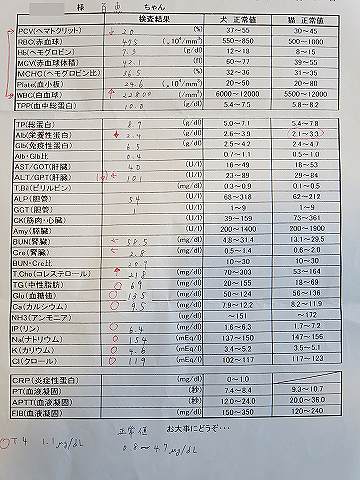 様 ちゃん
検査結果 犬 正常値 猫 正常値
PCV(ヘマトクリット) 20 (%) 37~55 30~45
RBC(赤血球) 495 (×10⁴/mm³) 550~850 500~1000
Hb(ヘモグロビン) 7.3 (g/dl) 12~18 8~15
MCV(赤血球体積) 42.1 (fl) 60~77 39~55
MCHC(ヘモグロビン比) 36.5 (%) 32~36 31~35
Plate(血小板) 24.6 (×10⁴/mm³) 20~50 20~80
WBC(白血球) 22800 (/mm³) 6000~12000 5500~12000
TPP(血中総蛋白) 10.0 (g/dl) 5.4~7.5 5.8~8.2
TP(総蛋白) 8.9 (g/dl) 5.0~7.1 5.4~7.8
Alb(栄養性蛋白) 2.4 (g/dl) 2.6~3.9 2.1~3.3
Glb(免疫性蛋白) 6.5 (g/dl) 2.5~4.2 2.4~4.7
Alb・Glb比 0.4 0.7~1.1 0.5~1.0
AST/GOT(肝臓) 40 (U/l) 16~49 18~53
ALT/GPT(肝臓) 101 (U/l) 23~89 29~84
T.Bil(ビリルビン) (mg/dl) 0.3~0.9 0.1~0.5
ALP(胆管) 54 (U/l) 68~318 62~212
GCT(胆管) 1 (U/l) 1~9 1~9
CK(筋肉・心臓) (U/l) 39~159 73~361
Amy(膵臓) (U/l) 200~1400 200~1900
BUN(腎臓) 58.5 (mg/dl) 4.8~31.4 13.1~29.5
Cre(腎臓) 2.8 (mg/dl) 0.5~1.4 0.6~2.0
BUN・Cre比 10~30 10~30
T.Cho(コレステロール) 218 (mg/dl) 70~303 53~164
TG(中性脂肪) 69 (mg/dl) 20~155 18~69
Glu(血糖値) 135 (mg/dl) 50~124 56~136
Ca(カルシウム) 9.5 (mg/dl) 7.9~12.2 8.2~11.9
NH3(アンモニア) (mg/dl) ~151 ~172
IP(リン) 6.4 (mg/dl) 1.6~6.3 1.7~7.2
Na(ナトリウム) 154 (mEq/l) 137~150 147~156
K(カリウム) 4.6 (mEq/l) 3.4~5.2 3.5~5.1
Cl(クロール) 119 (mEq/l) 102~117 117~123
CRP(炎症性蛋白) (mg/dl) 0~1.0
PT(血液凝固) (秒) 7.4~8.4 9.3~10.7
APTT(血液凝固) (秒) 12.0~24.0 20.0~36.0
FIB(血液凝固) (mg/dl) 150~350 120~240
お大事にどうぞ・・・
T4 1.1μg/dL 正常値 0.8~4.7μg/dL